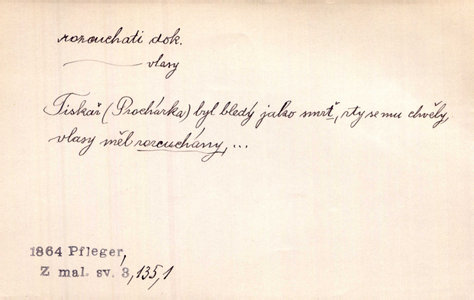 rozcuchati dok.
vlasy
Tiskař (Procházka) byl bledý jako smrť, rty se mu chvěly,
vlasy měl rozcuchány, ...
1864 Pfleger,
Z mal. sv. 3,135,1